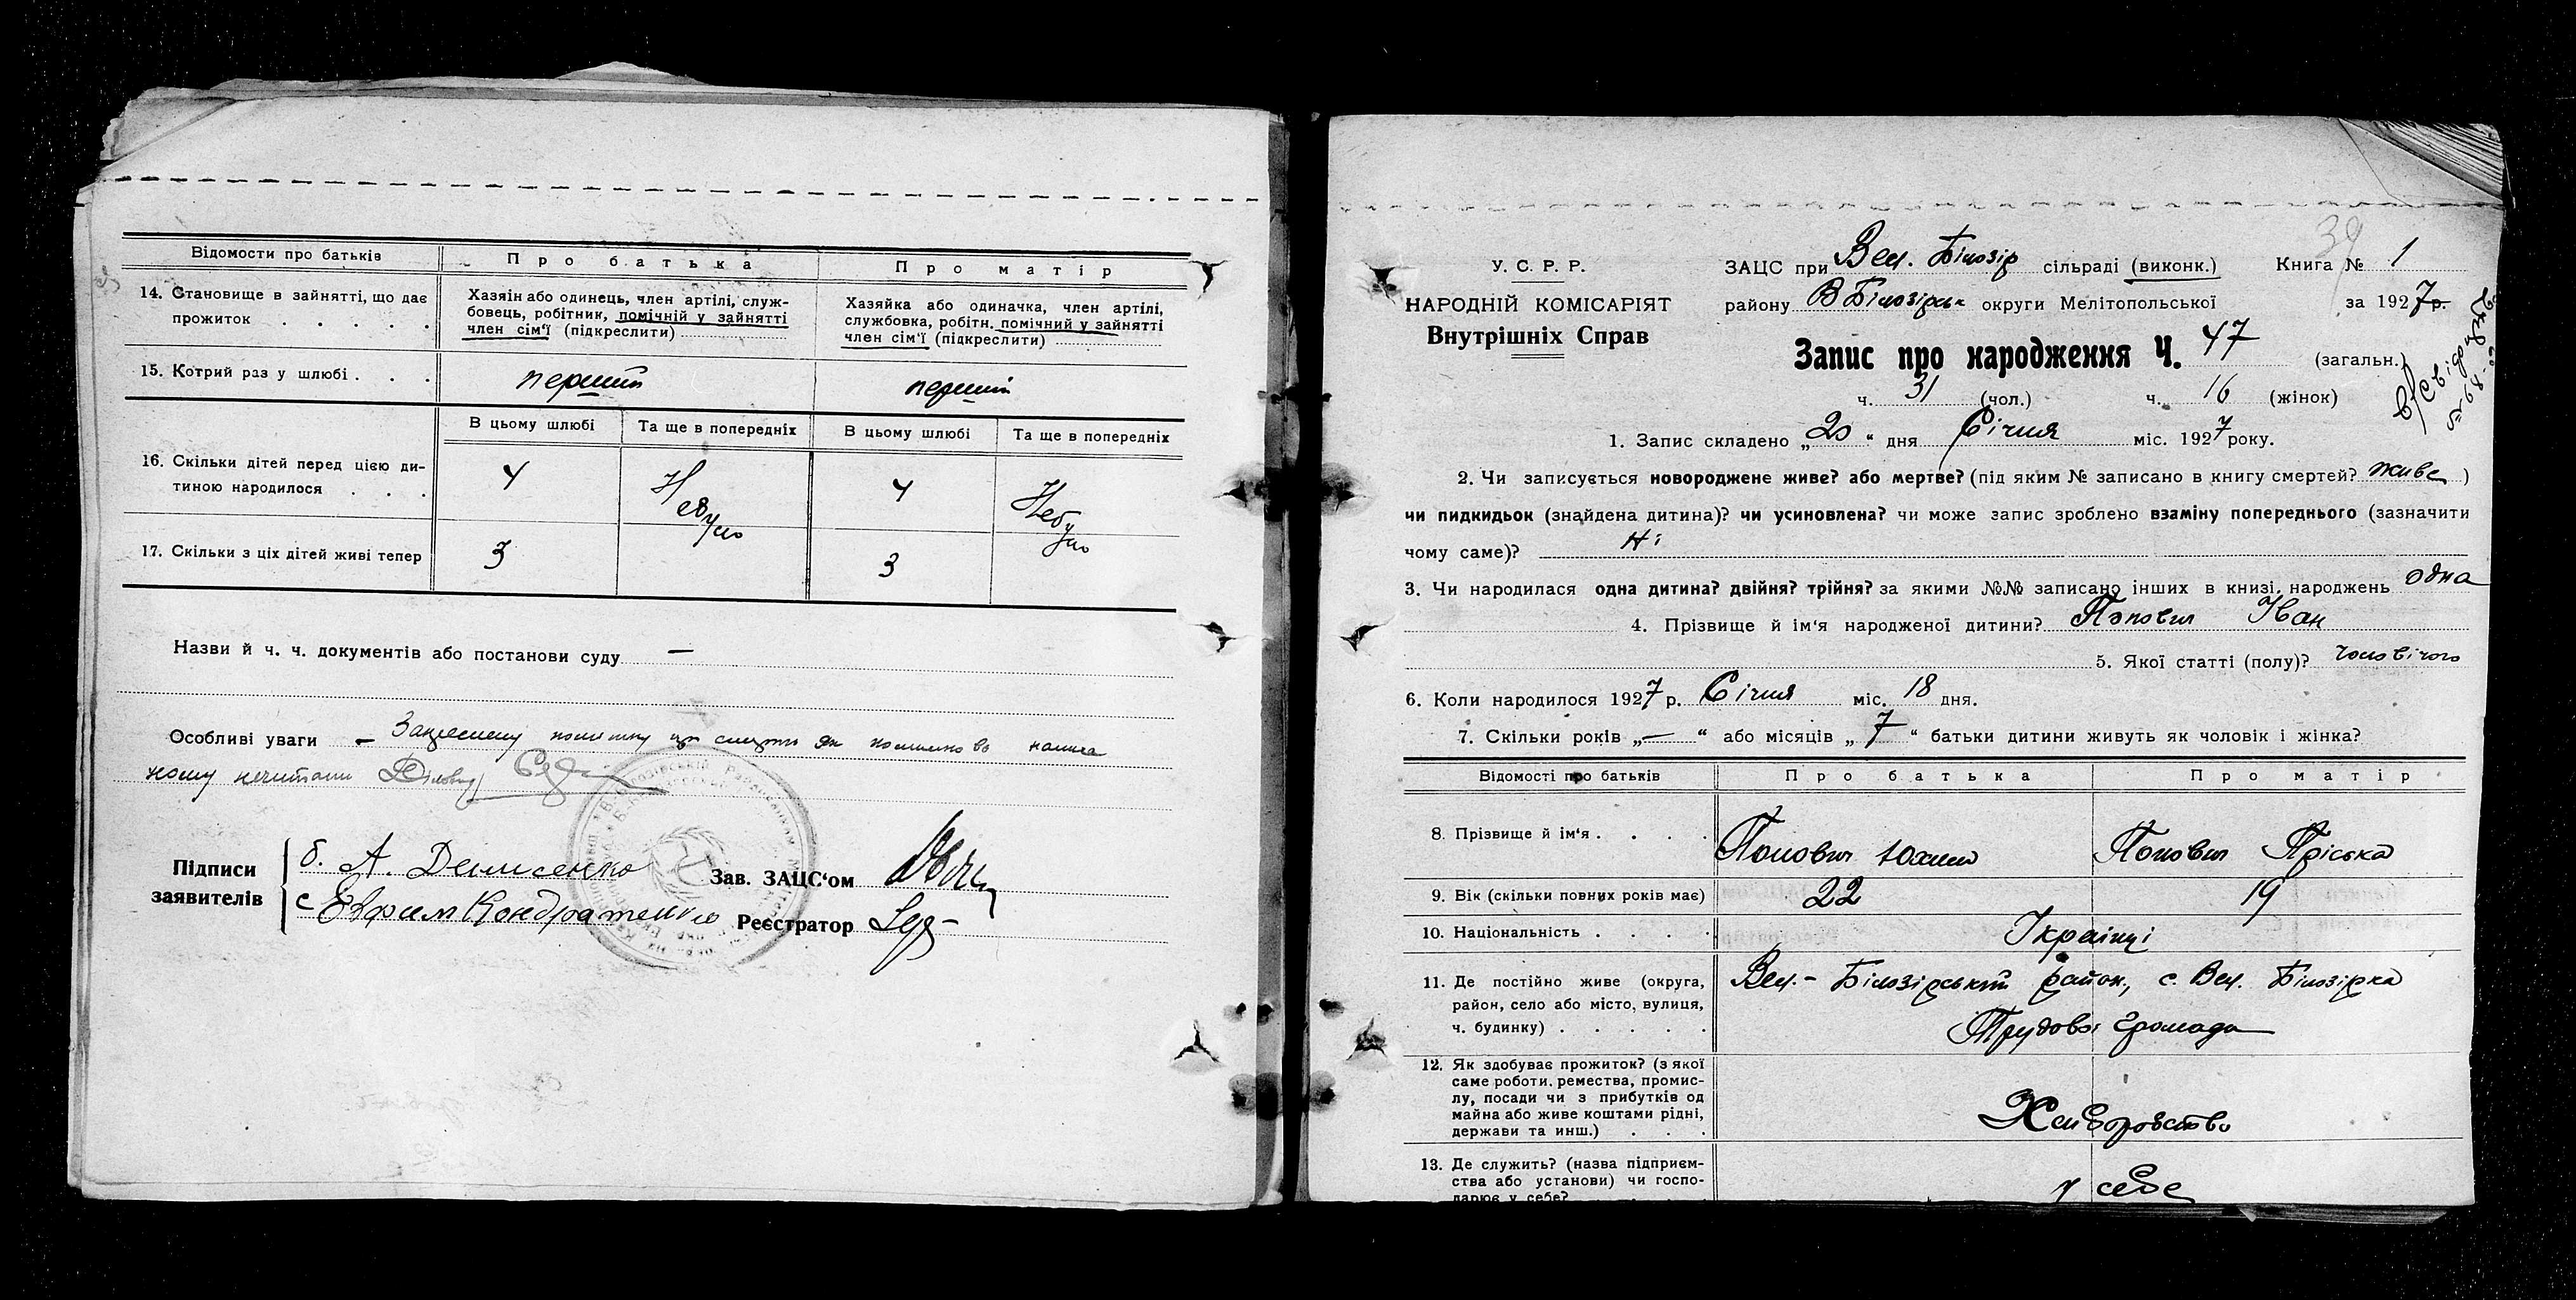 Відомости про батьків
Про батька
Про матір
14. Становище в зайнятті, що дає
прожиток . . . . .
Хазяін або одинець, член артілі, служ-
бовець, робітник, помічній у зайнятті
член сім'ї (підкреслити)
Хазяйка або одиначка, член артілі,
службовка, робітн. помічний у зайнятті
член сім'ї (підкреслити)
15. Котрий раз у шлюбі . . .
перший
перший
В цьому шлюбі
Та ще в попередніх
В цьому шлюбі
Та ще в попередніх
16. Скільки дітей перед цією ди-
тиною народилося . . .
4
Небуло
4
Небуло
17. Скільки з ціх дітей живі тепер
3
3
Назви й ч. ч. документів або постанови суду —
Особливі уваги —
ному нечитати
Підписи
заявителів
б. А. Денисенко
с Евфим Кондратенко
Зав. ЗАЦС'ом
Реєстратор
39
У. С. Р. Р.
НАРОДНІЙ КОМІСАРІЯТ
Внутрішніх Справ
ЗАЦС при Вел. Білозір сільраді (виконк.)
Книга № 1
району В Білозірськ округи Мелітопольської
за 1927 р.
Запис про народження Ч. 47 (загальн.)
ч. 31 (чол.) ч. 16 (жінок)
1. Запис складено „20“ дня Січня міс. 1927 року.
2. Чи записується новороджене живе? або мертве? (під яким № записано в книгу смертей? живе)
чи пидкидьок (знайдена дитина)? чи усиновлена? чи може запис зроблено взаміну попереднього (зазначити
чому саме)? Ні
3. Чи народилася одна дитина? двійня? трійня? за якими №№ записано інших в книзі народжень одна
4. Прізвище й ім'я народженої дитини? Попович Іван
5. Якої статті (полу)? чоловічого
6. Коли народилося 1927 р. Січня міс. 18 дня.
7. Скільки років „—“ або місяців „7“ батьки дитини живуть як чоловік і жінка?
Відомості про батьків
Про батька
Про матір
8. Прізвище й ім'я . . . .
Попович Юхим
Попович Пріська
9. Вік (скільки повних років має)
22
19
10. Національність . . . .
Українці
11. Де постійно живе (округа,
район, село або місто, вулиця,
ч. будинку) . . . . .
Вел.-Білозірський район, с. Вел. Білозірка
Трудова громада
12. Як здобуває прожиток? (з якої
саме роботи, ремества, промис-
лу, посади чи з прибутків од
майна або живе коштами рідні,
держави та инш.) . . .
Хліборобство
13. Де служить? (назва підприєм-
ства або установи) чи госпо-
дарює у себе?
у себе